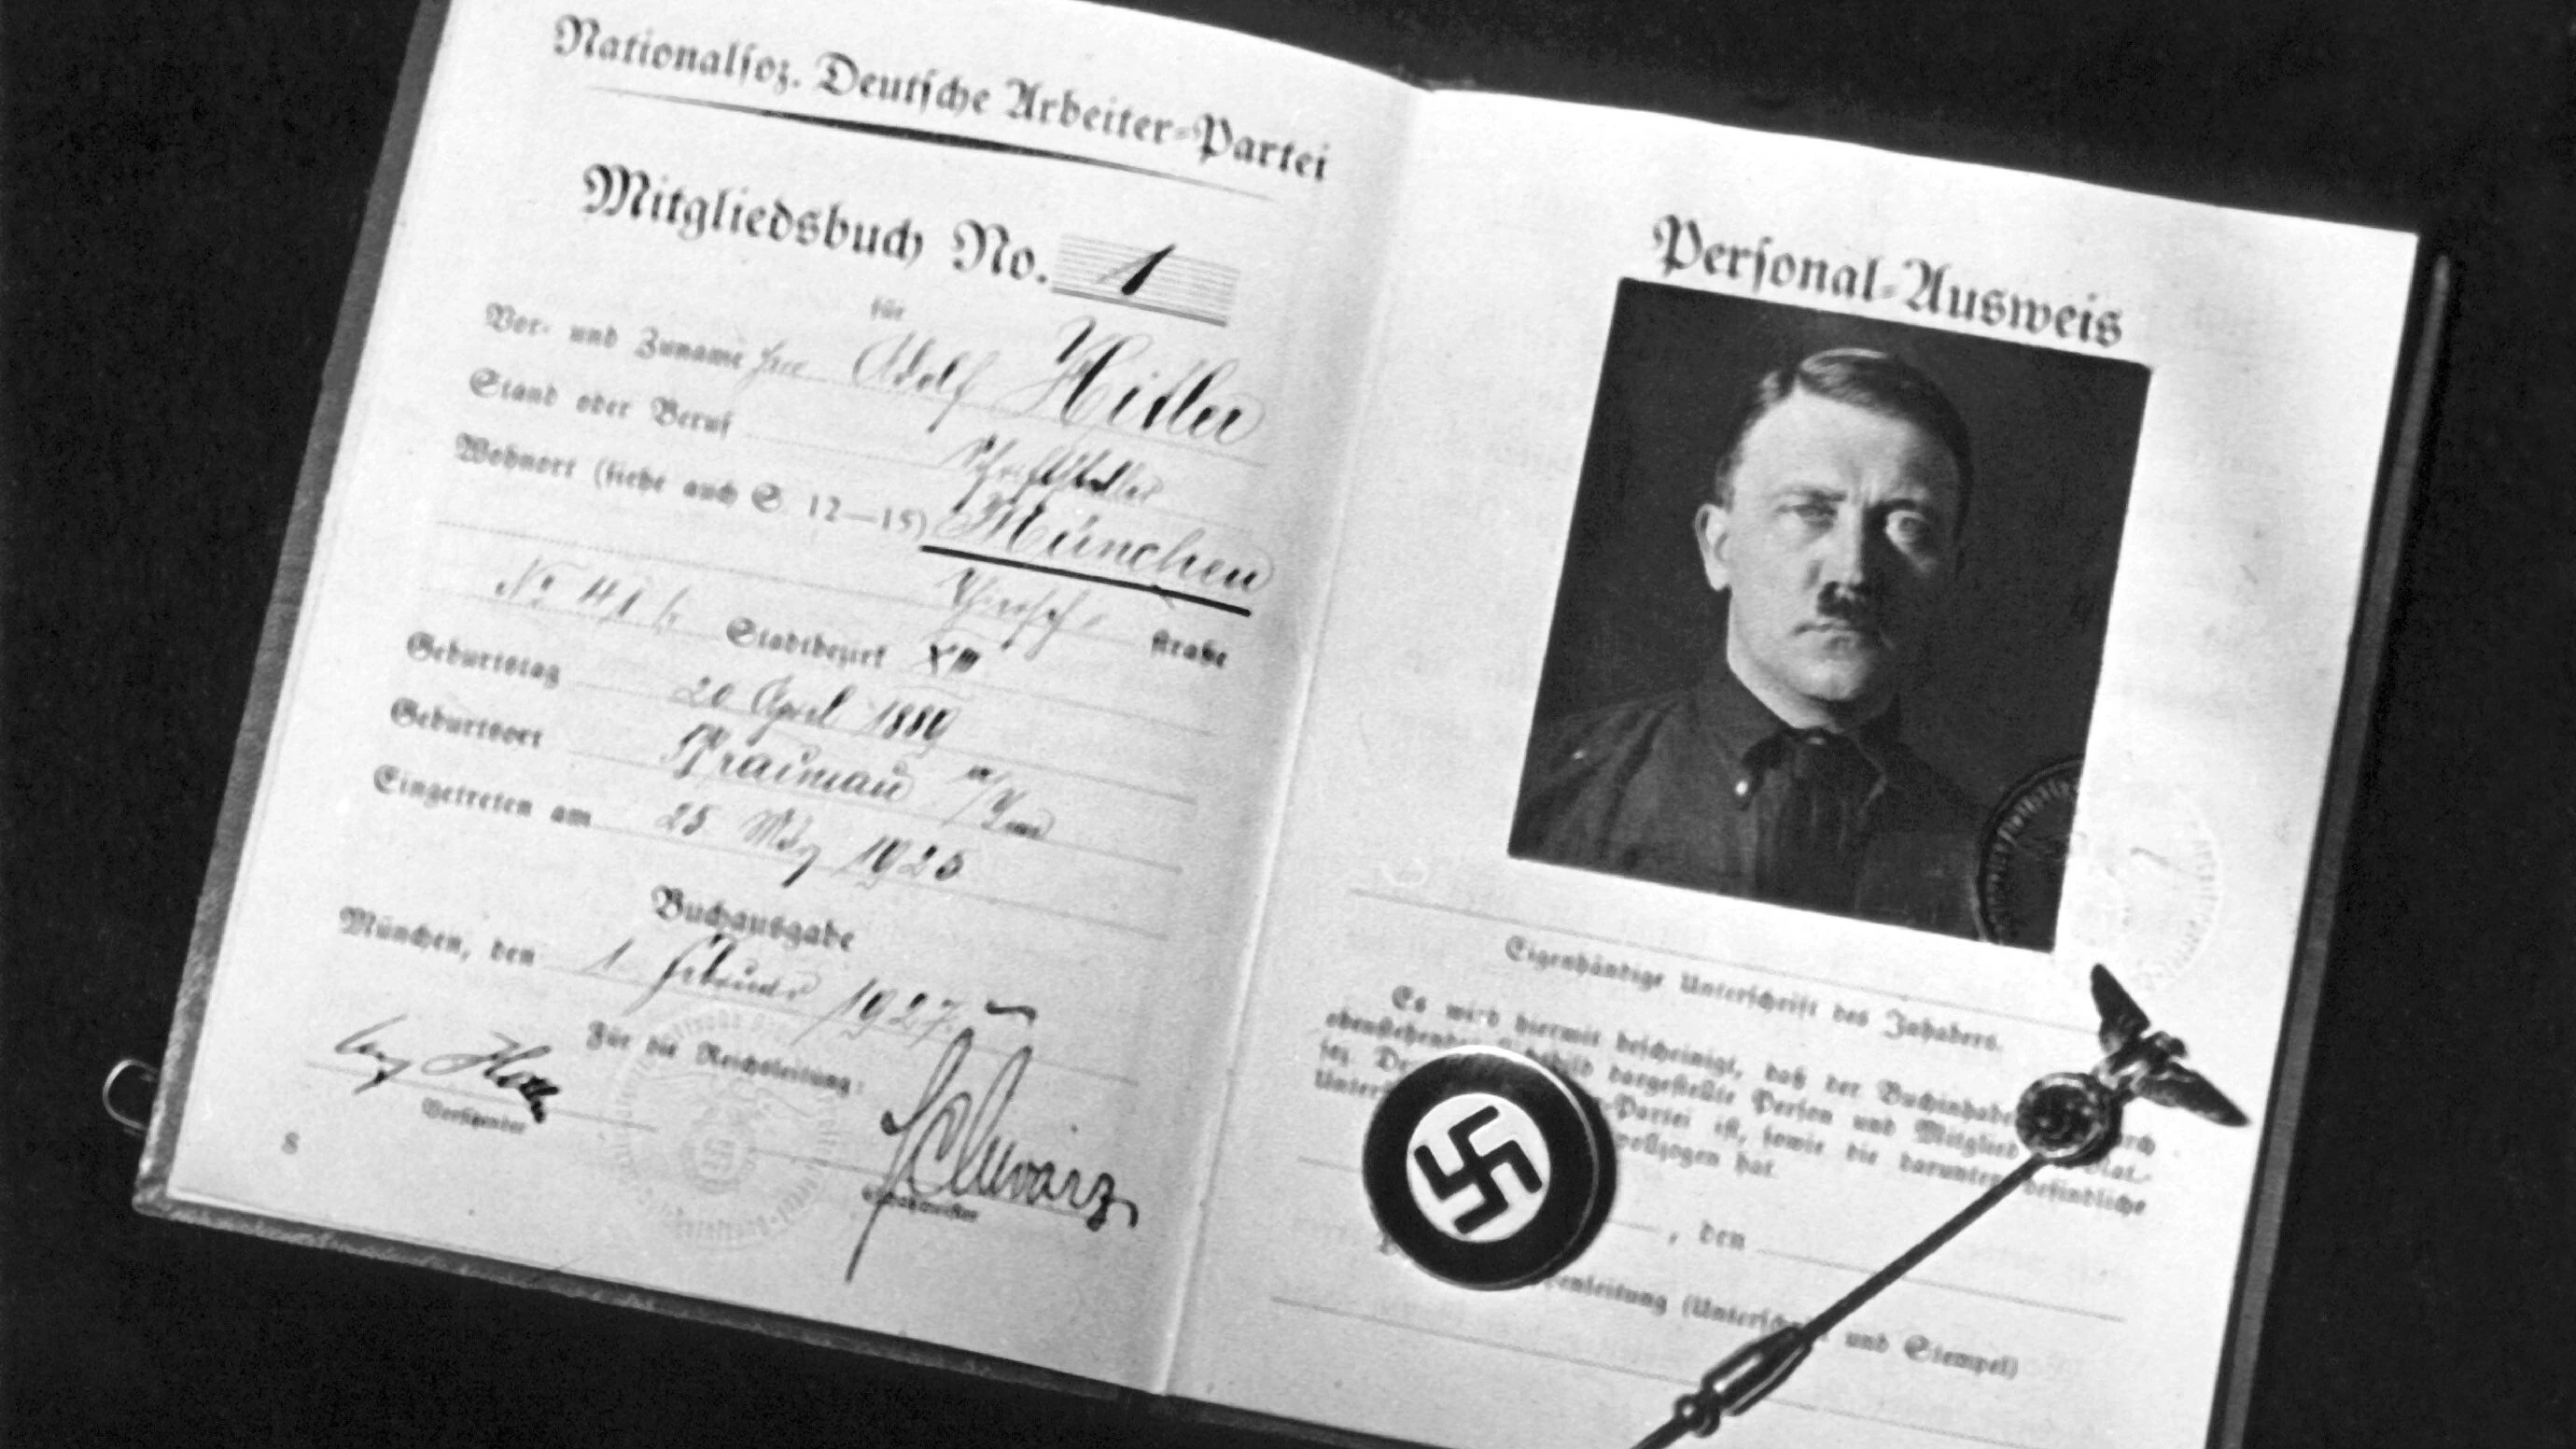 Nationalsoz. Deutsche Arbeiter-Partei
Mitgliedsbuch No. 1
für
Vor- und Zuname Adolf Hitler
Stand oder Beruf Schriftsteller
Wohnort (siehe auch S. 12—15) München
straße
No 41 Stadtbezirk XIII
Geburtstag 20 April 1889
Geburtsort Braunau a/Inn
Eingetreten am 25 März 1925
Buchausgabe
München, den 1 Februar 1927
Für die Reichsleitung:
Schwarz
Vorsitzender
S
Personal-Ausweis
Eigenhändige Unterschrift des Inhabers.
Es wird hiermit bescheinigt, daß der Buchinhaber
dargestellte Person und Mitglied
-Partei ist, sowie die darunter befindliche
vollzogen hat.
, den
und Stempel)